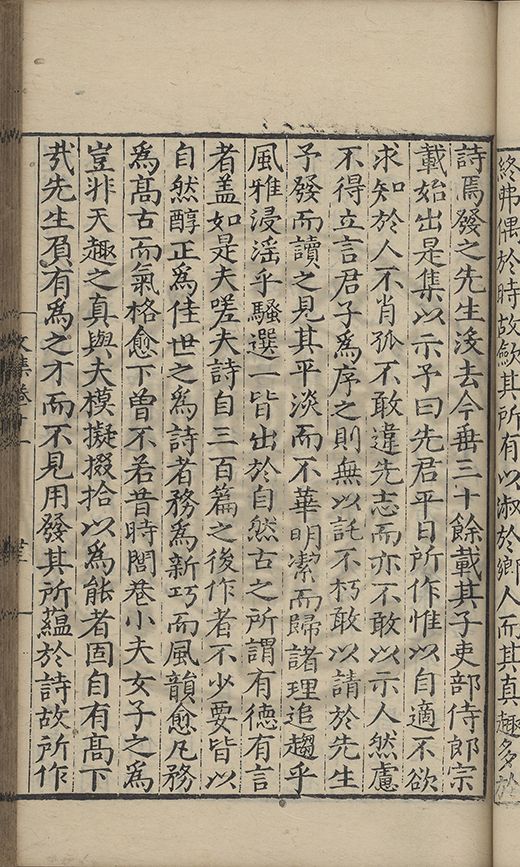 終弗偶於時故歛其所有以淑於鄉人而其真趣多於
詩焉發之先生没去今垂三十餘載其子吏部侍郎宗
載始出是集以示予曰先君平日所作惟以自適不欲
求知於人不肖孤不敢違先志而亦不敢以示人然慮
不得立言君子爲序之則無以託不朽敢以請於先生
予發而讀之見其平淡而不華明潔而歸諸理追趨乎
風雅浸淫乎騷選一皆出於自然古之所謂有德有言
者盖如是夫嗟夫詩自三百篇之後作者不少要皆以
自然醇正爲佳世之爲詩者務爲新巧而風韻愈凡務
爲髙古而氣格愈下曾不若昔時閭巷小夫女子之爲
豈非天趣之真與夫模擬掇拾以爲能者固自有髙下
㢤先生負有爲之才而不見用發其所藴於詩故所作
文集卷十一